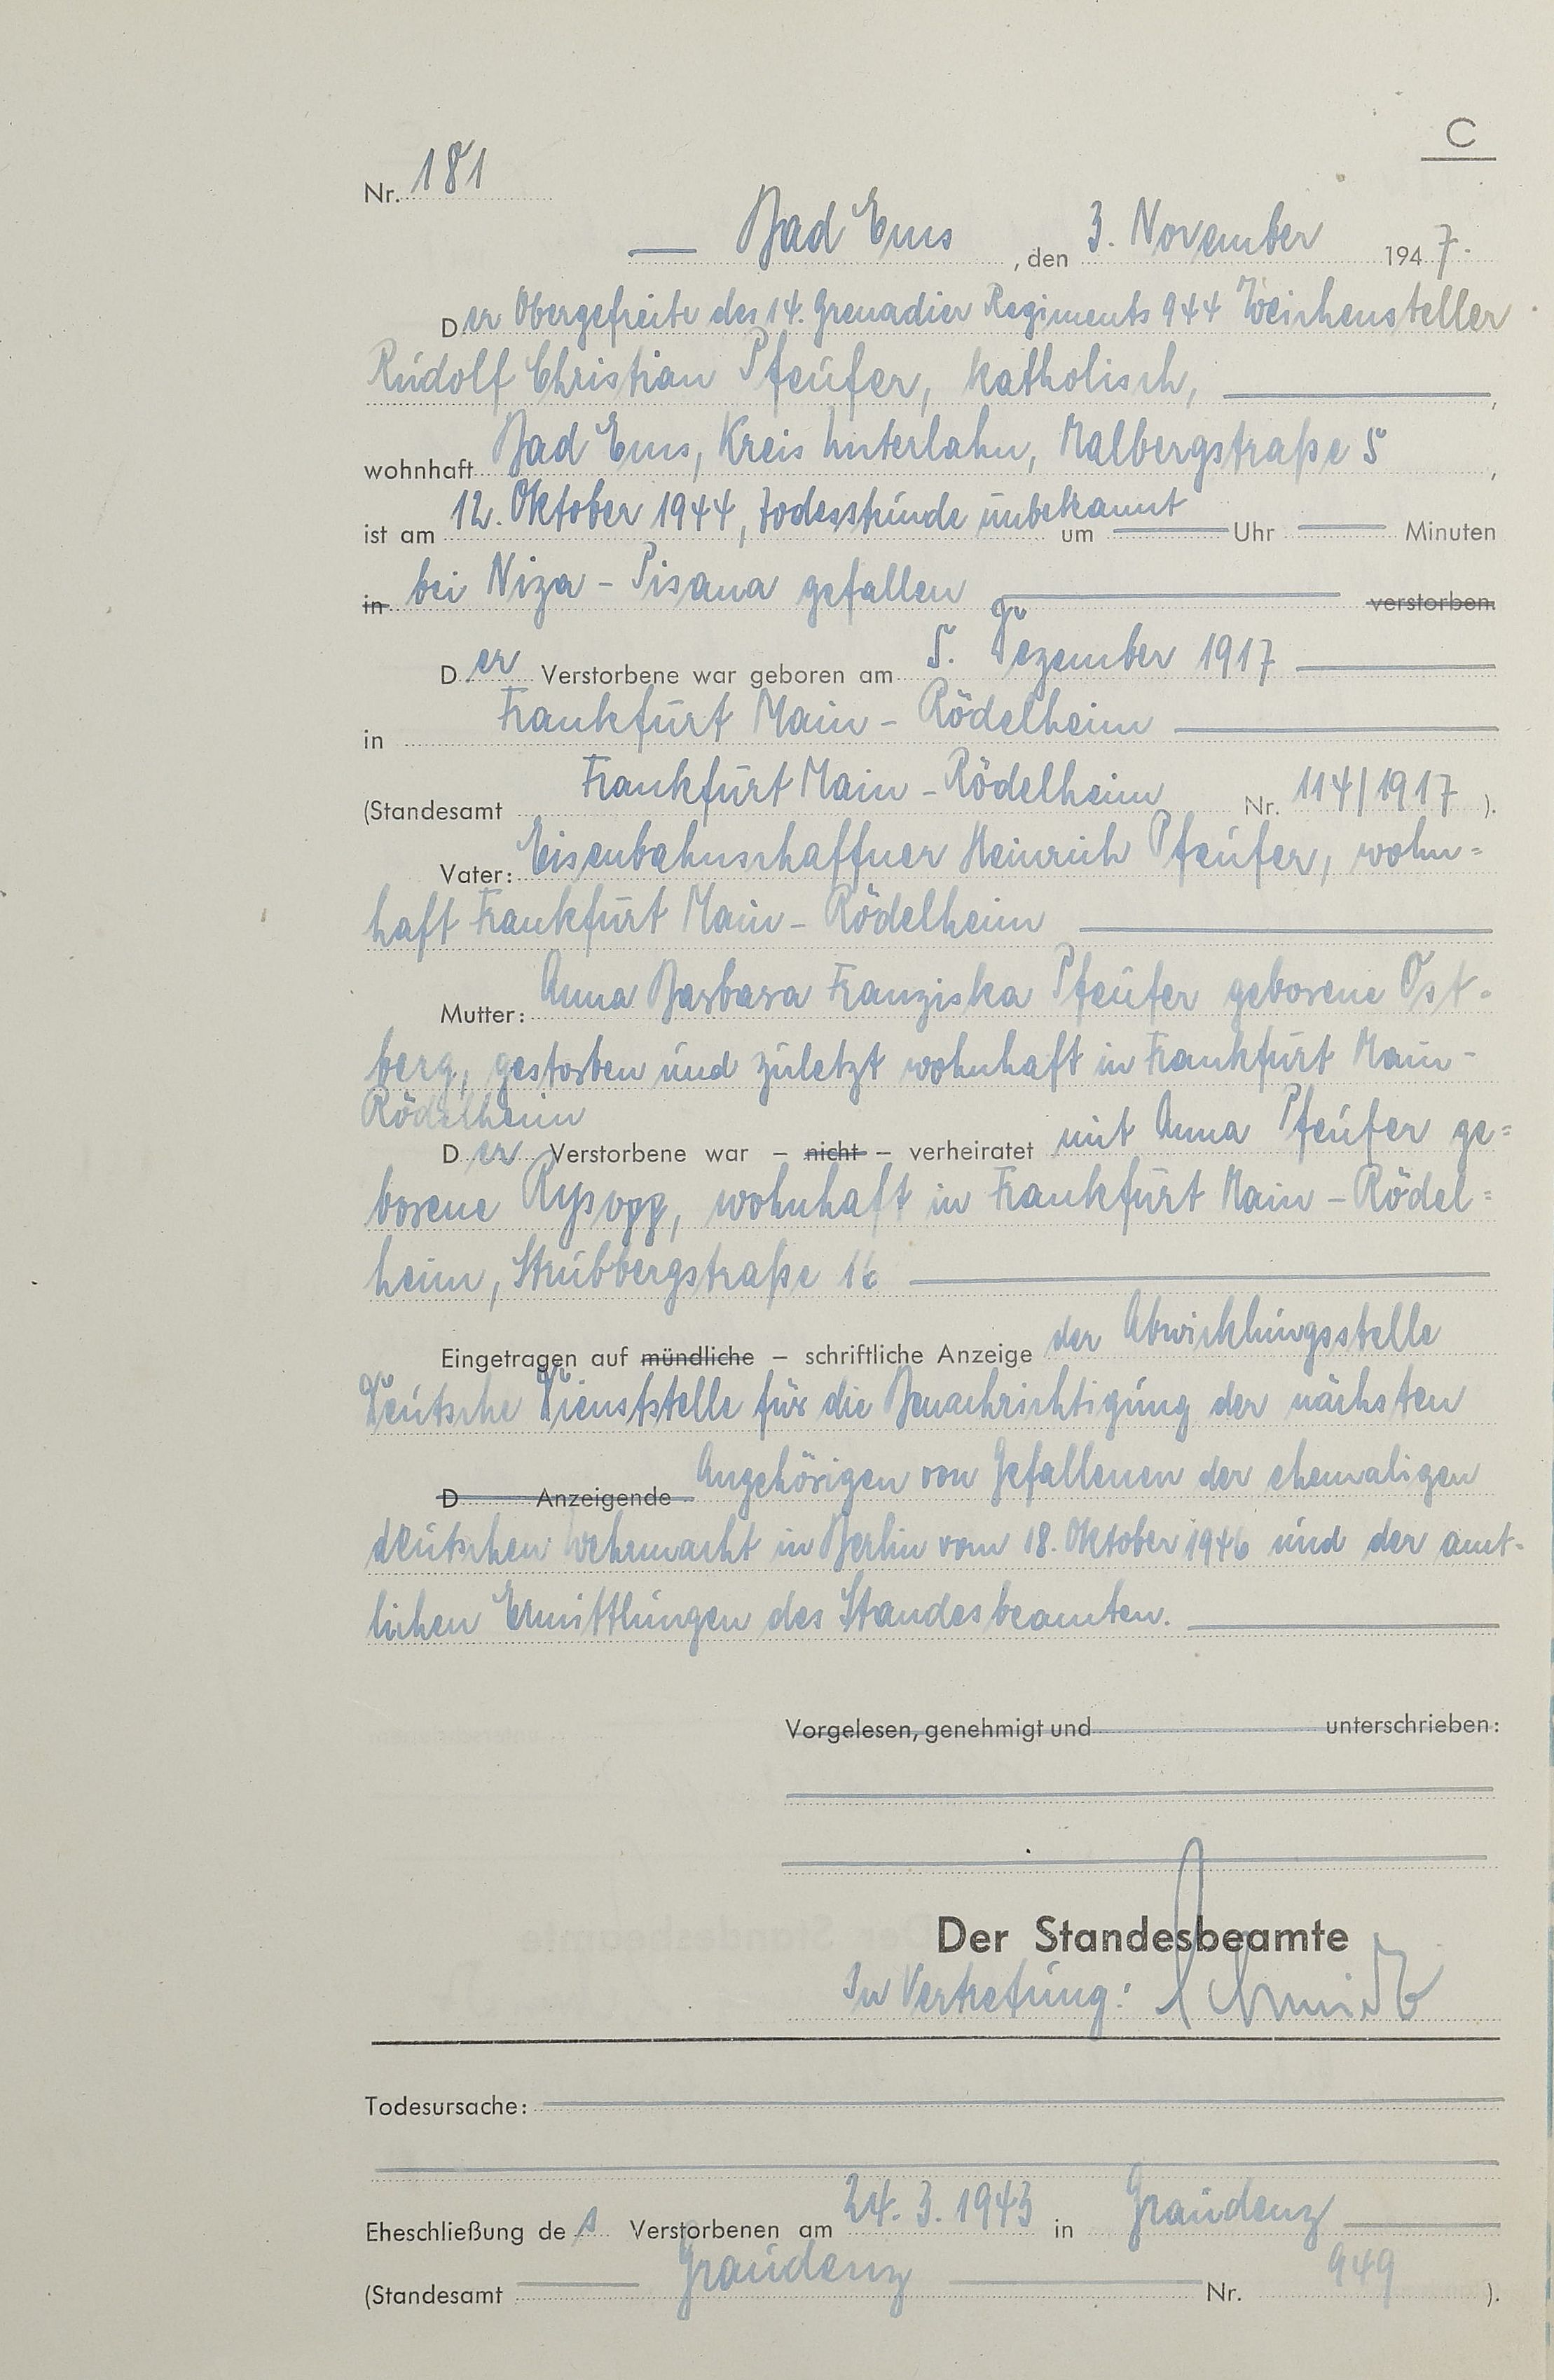 C
Nr. 181
Bad Ems, den 3. November 1947.
Der Obergefreite des 14. Grenadier Regiments 944 Weichensteller
Rudolf Christian Pfeufer, katholisch,
wohnhaft Bad Ems, Kreis Unterlahn, Malbergstraße 5,
ist am 12. Oktober 1944, Todesstunde unbekannt um Uhr Minuten
in bei Niza - Pisana gefallen verstorben.
Der Verstorbene war geboren am 5. Dezember 1917
in Frankfurt Main - Rödelheim
(Standesamt Frankfurt Main - Rödelheim Nr. 114/1917 ).
Vater: Eisenbahnschaffner Heinrich Pfeufer, wohn=
haft Frankfurt Main - Rödelheim
Mutter: Anna Barbara Franziska Pfeufer geborene Ost-
berg, gestorben und zuletzt wohnhaft in Frankfurt Main -
Rödelheim
Der Verstorbene war - nicht - verheiratet mit Anna Pfeufer ge=
borene wohnhaft in Frankfurt Main - Rödel=
heim, Strubbergstraße 16
Eingetragen auf mündliche - schriftliche Anzeige der Abwicklungsstelle
Deutsche Dienststelle für die Benachrichtigung der nächsten
D Anzeigende Angehörigen von Gefallenen der ehemaligen
deutschen Wehrmacht in Berlin vom 18. Oktober 1946 und der amt-
lichen Ermittlungen des Standesbeamten.
Vorgelesen, genehmigt und unterschrieben:
Der Standesbeamte
In Vertretung: Schmidt
Todesursache:
Eheschließung des Verstorbenen am 24. 3. 1943 in Graudenz
(Standesamt Graudenz Nr. 949 ).